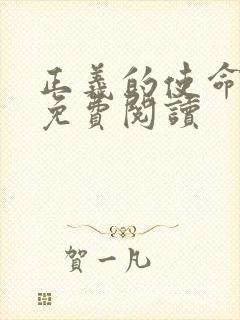 正義的使命
免費閱讀
賀一凡